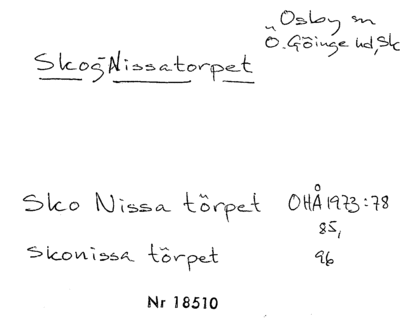 Osby sn
Ö. Göinge hd, Sk
Sko-Nissatorpet
Sko Nissa törpet OHÅ 1973:78
85,
Skonissa törpet 96
Nr 18510